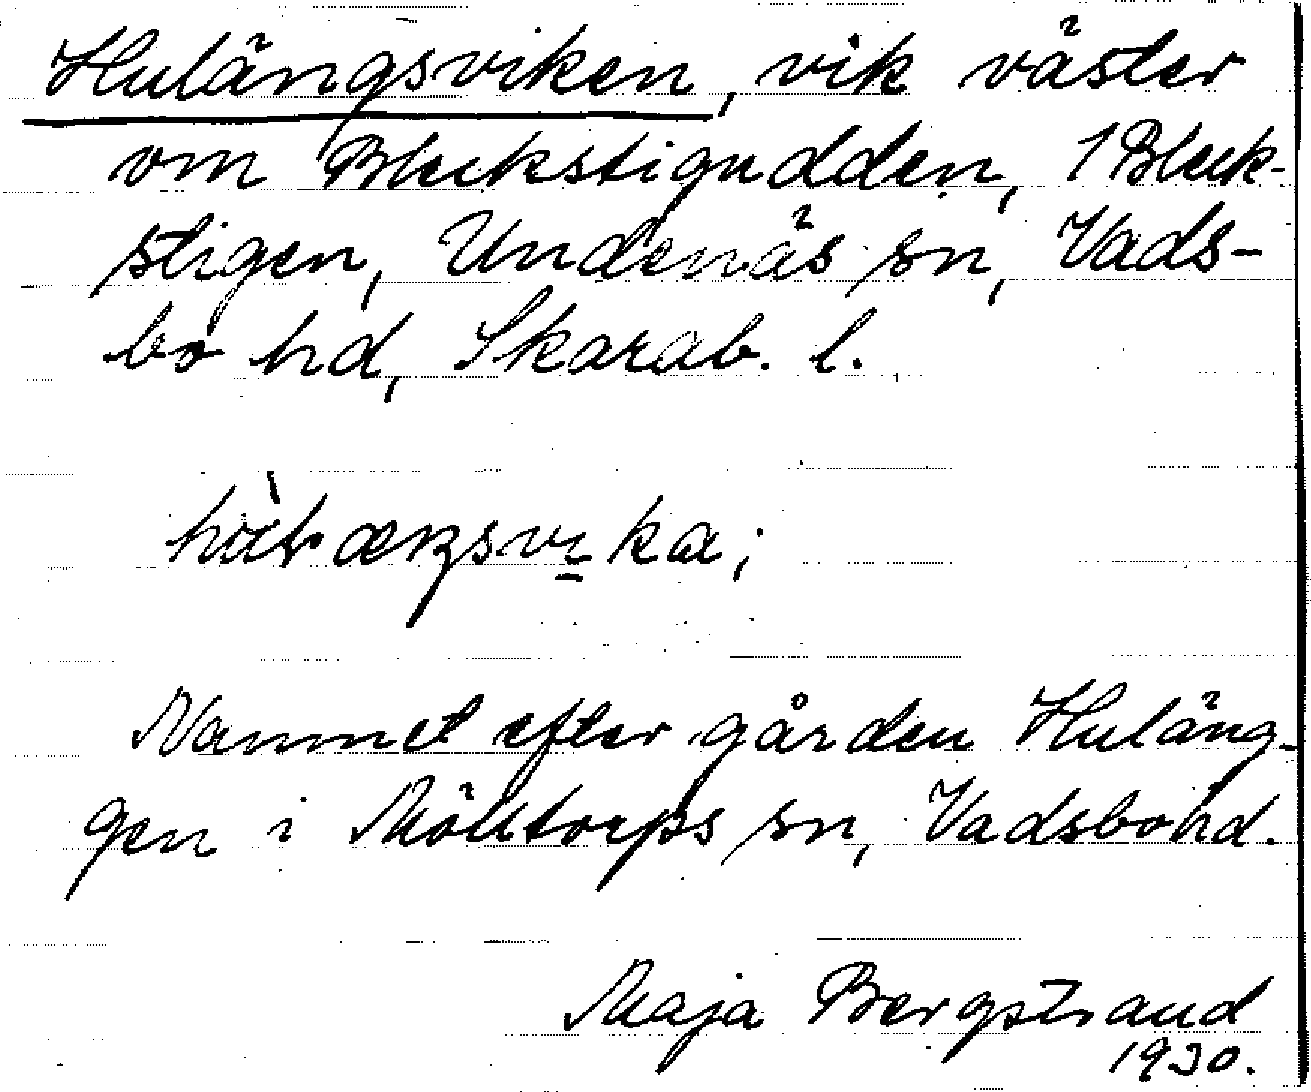 Hulängsviken, vik väster
om Bleckstigudden, 1 Bleck-
stigen, Undenäs sn, Vads-
bo hd, Skarab. l.
Namnet efter gården Huläng-
gen i Mölltorps sn, Vadsbo hd.
Maja Bergstrand
1930.